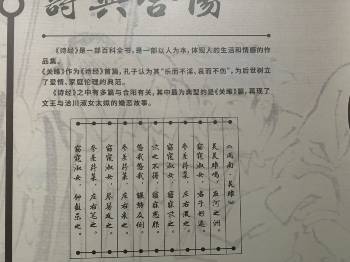 詩與合陽
《诗经》是一部百科全书，是一部以人为本，体现人的生活和情感的作
品集。
《关雎》作为《诗经》首篇，孔子认为其“乐而不淫，哀而不伤”，为后世树立
了爱情、家庭伦理的典范。
《诗经》之中有多篇与合阳有关，其中最为典型的是《关雎》篇，再现了
文王与洽川淑女太姒的婚恋故事。
《周南·关雎》
关关雎鸠，在河之洲。
窈窕淑女，君子好逑。
参差荇菜，左右流之。
窈窕淑女，寤寐求之。
求之不得，寤寐思服。
悠哉悠哉，辗转反侧。
参差荇菜，左右采之。
窈窕淑女，琴瑟友之。
参差荇菜，左右芼之。
窈窕淑女，钟鼓乐之。